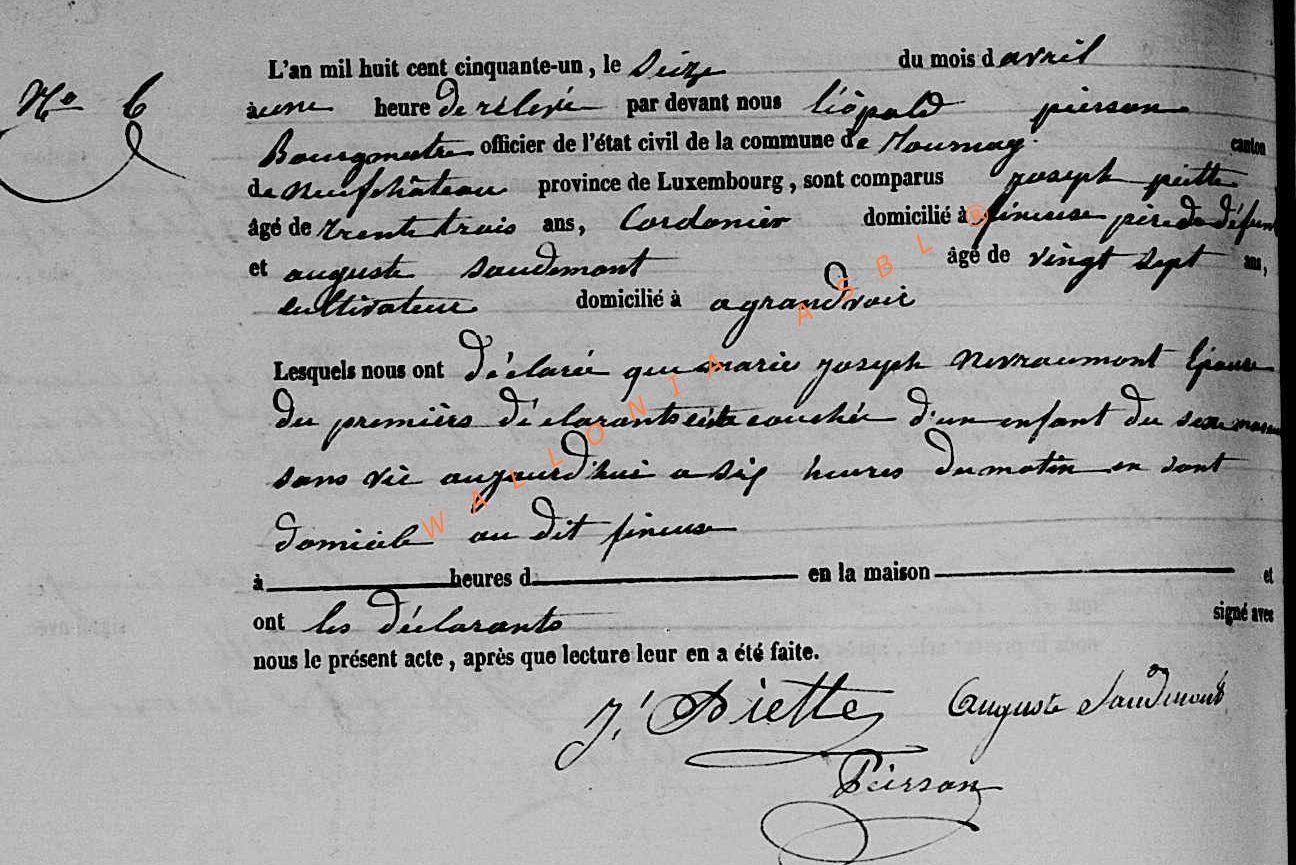 L'an mil huit cent cinquante-un, le Seize du mois d avril
No 6
à une heure de rélevée par devant nous Léopold pierson
Bourgmestre officier de l'état civil de la commune de Tournay canton
de neufchâteau province de Luxembourg, sont comparus joseph piette
âgé de trente trois ans, Cordonier domicilié à fineuse père du défunt
et auguste Saudemont âgé de vingt sept ans,
cultivateur domicilié à agrandvoir
Lesquels nous ont déclaré que marie joseph Nevraumont Epouse
du premiers déclarants accouchée d'un enfant du sexe
sans vie aujourd'hui a six heures du matin en sont
domicile au dit fineuse
à heures d en la maison et
ont les déclarants signé avec
nous le présent acte, après que lecture leur en a été faite.
J. Piette Auguste Saudmont
Peirson
WALLONIA ASBL ®